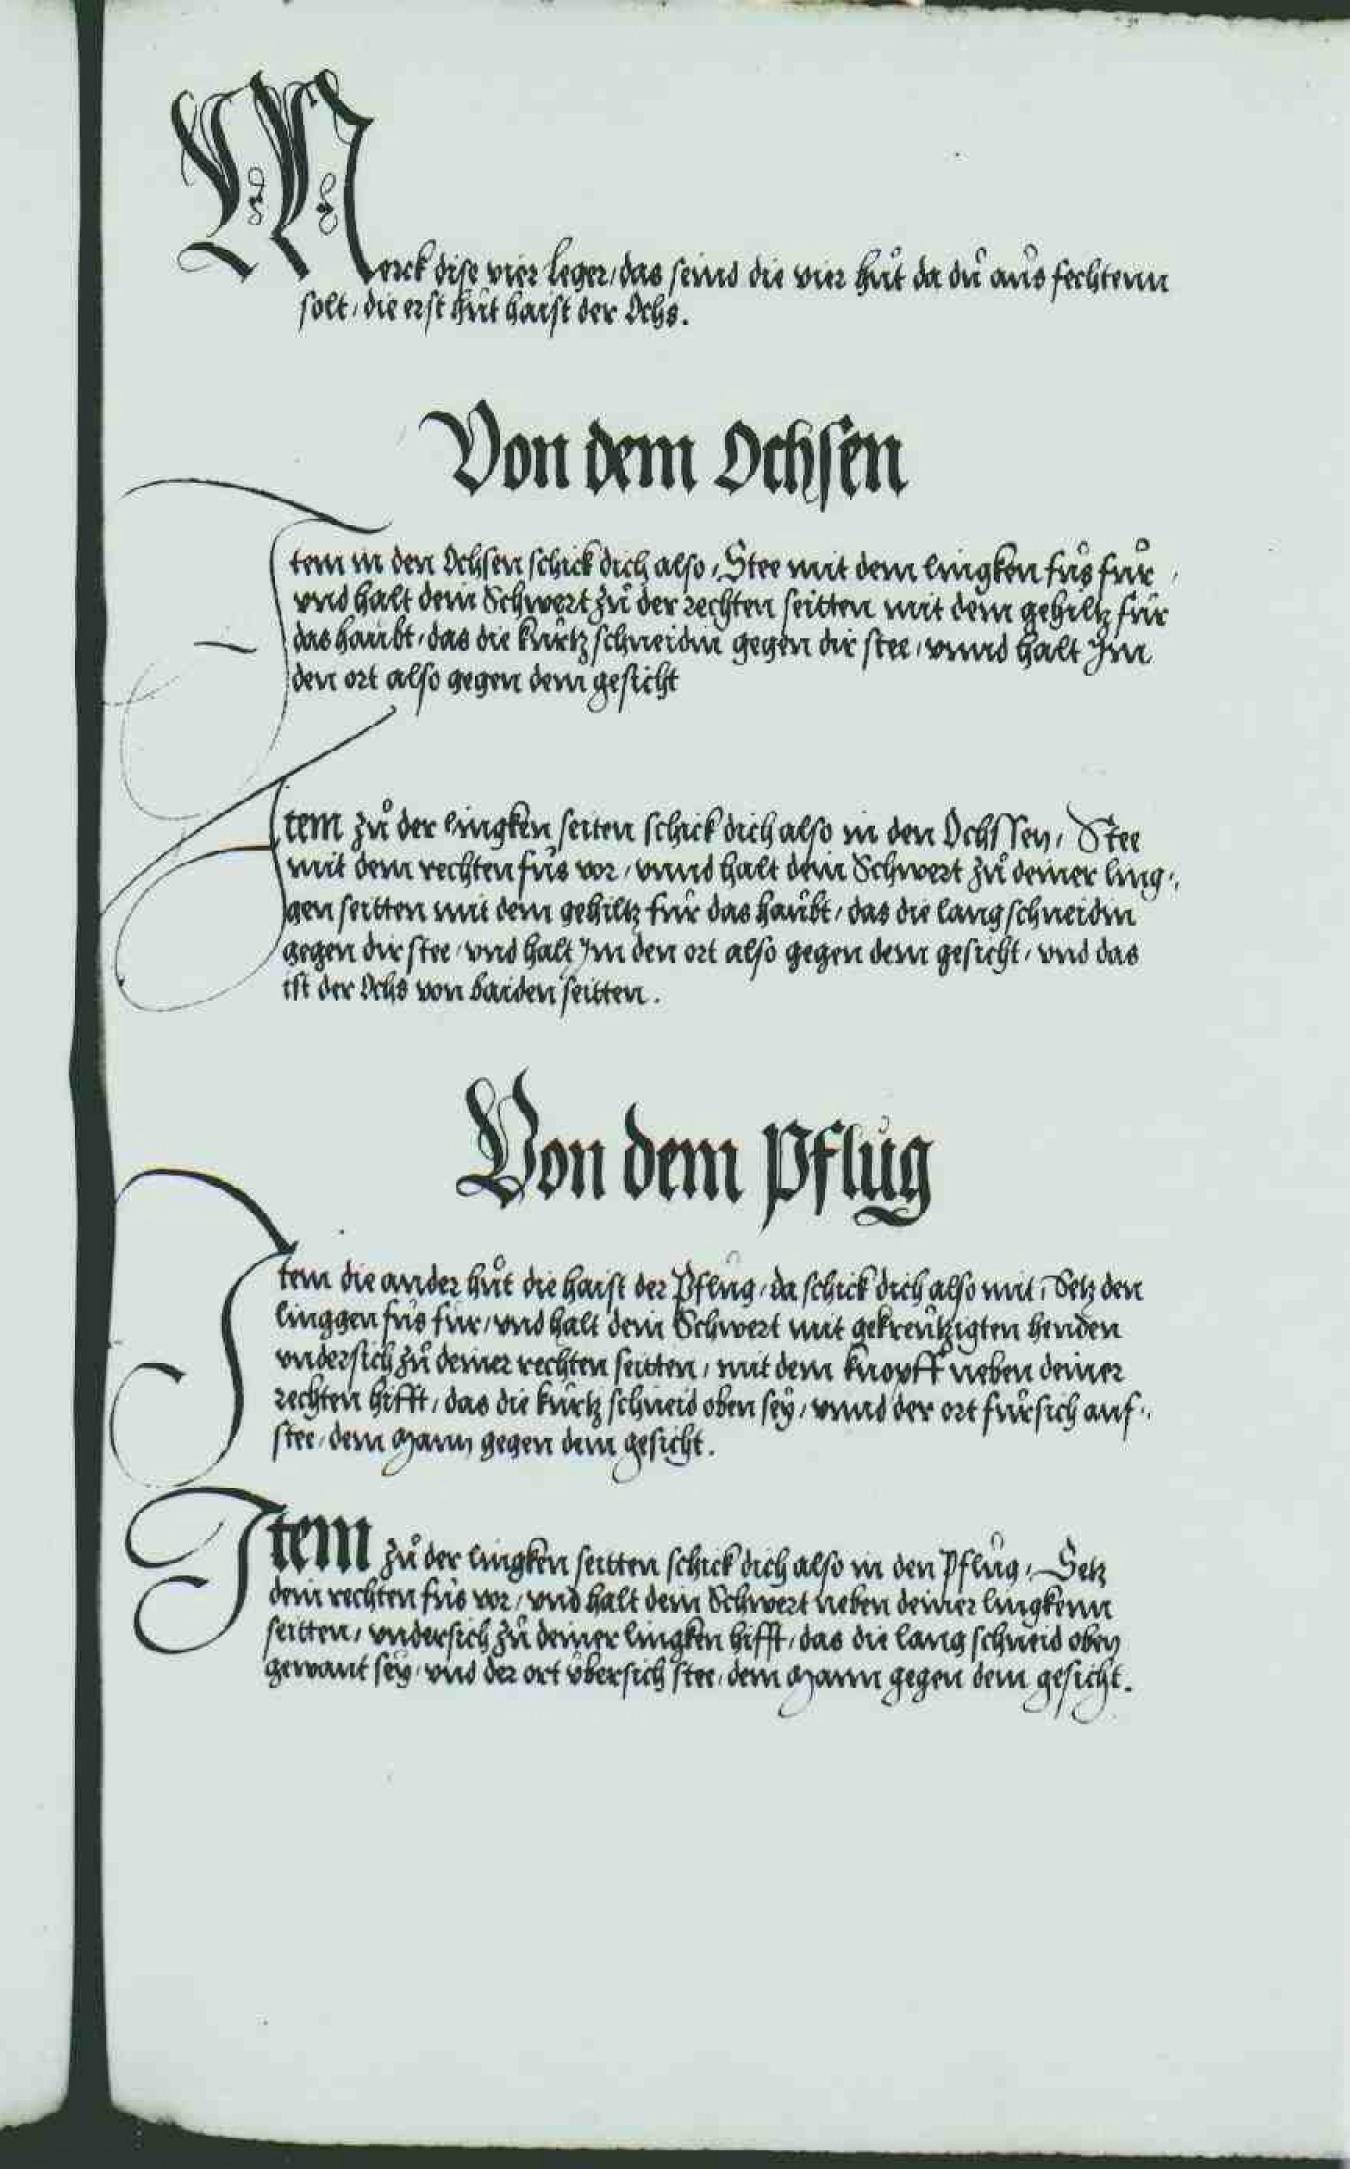 Merck dise vier leger / das seind die vier hůt da dů aůs fechtenn
solt / die erst hůt haist der Ochs.
Von dem Ochsen
Item in den Ochsen schick dich also / Stee mit dem lingken fůs fůr /
vnd halt dein Schwert zů der rechten seitten mit dem gehiltz fůr
das haůbt / das die kůrtz schneidin gegen dir stee / vnnd halt Im
den ort also gegen dem gesicht
Item zů der lingken seiten schick dich also in den Ochssen / Stee
mit dem rechten fůs vor / vnnd halt dein Schwert zů deiner ling,,
gen seitten mit dem gehiltz fůr das haůbt / das die lang schneidin
gegen dir stee / vnd halt Im den ort also gegen dem gesicht / vnd das
ist der Ochs von baiden seitten.
Von dem Pflůg
Item die ander hůt die haist der Pflůg / da schick dich also mit / Setz den
linggen fůs fůr / vnd halt dein Schwert mit gekreůtzigten henden
vndersich zů deiner rechten seitten / mit dem knopff neben deiner
rechten hifft / das die kůrtz schneid oben seÿ / vnnd der ort fůrsich auf,,
stee / dem Mann gegen dem gesicht.
Item zů der lingken seitten schick dich also in den Pflůg / Setz
dein rechten fůs vor / vnd halt dein Schwert neben deiner lingkenn
seitten / vndersich zů deiner lingken hifft / das die lang schneid oben
gewant seÿ / vnd der ort ůbersich stee / dem Mann gegen dem gesicht.